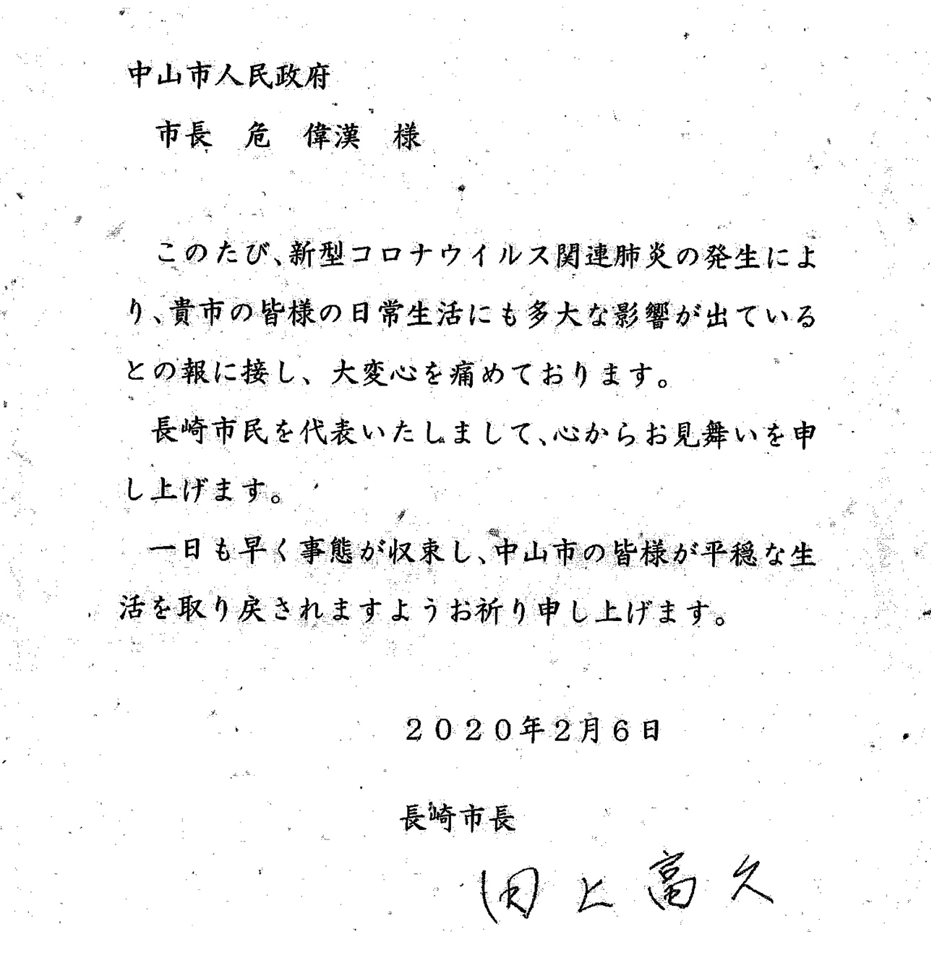 中山市人民政府
市長　危　偉漢　様
このたび、新型コロナウイルス関連肺炎の発生によ
り、貴市の皆様の日常生活にも多大な影響が出ている
との報に接し、大変心を痛めております。
長崎市民を代表いたしまして、心からお見舞いを申
し上げます。
一日も早く事態が収束し、中山市の皆様が平穏な生
活を取り戻されますようお祈り申し上げます。
２０２０年２月６日
長崎市長
田上富久